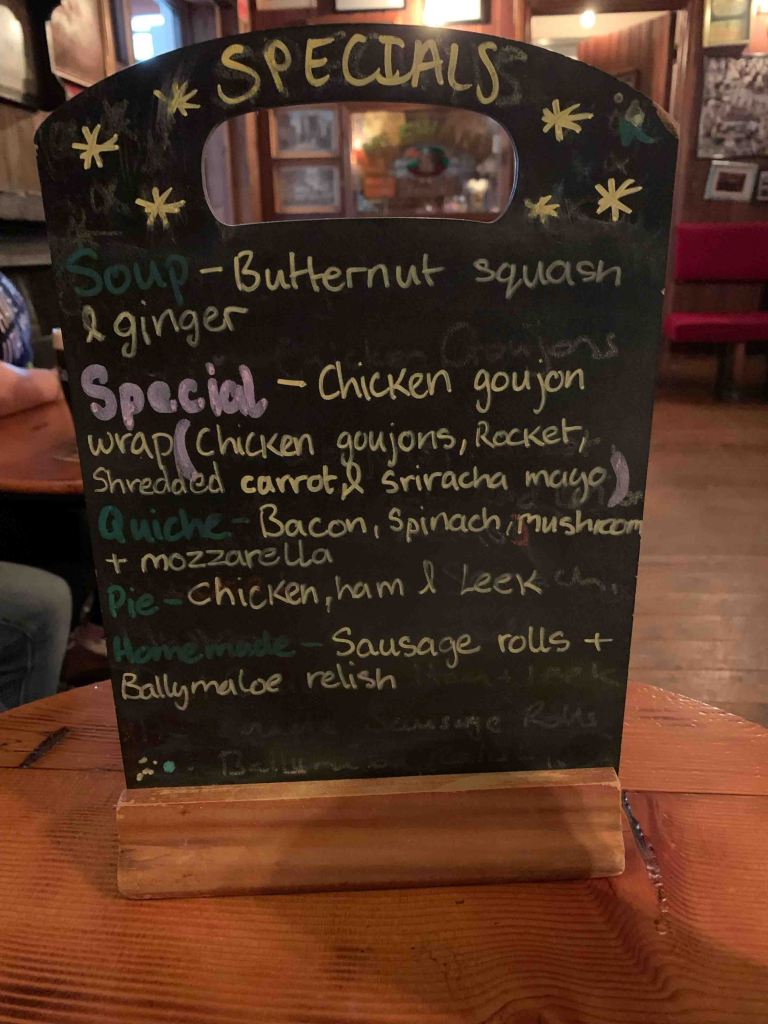 SPECIALS
Soup - Butternut squash
& ginger
Chicken Goujons
Special - Chicken goujon
wrap (Chicken goujons, Rocket,
Shredded carrot, & sriracha mayo)
Quiche - Bacon, Spinach, mushroom
+ mozzarella
Pie - Chicken, ham & Leek
Homemade - Sausage rolls +
Ballymaloe relish
Sausage Rolls